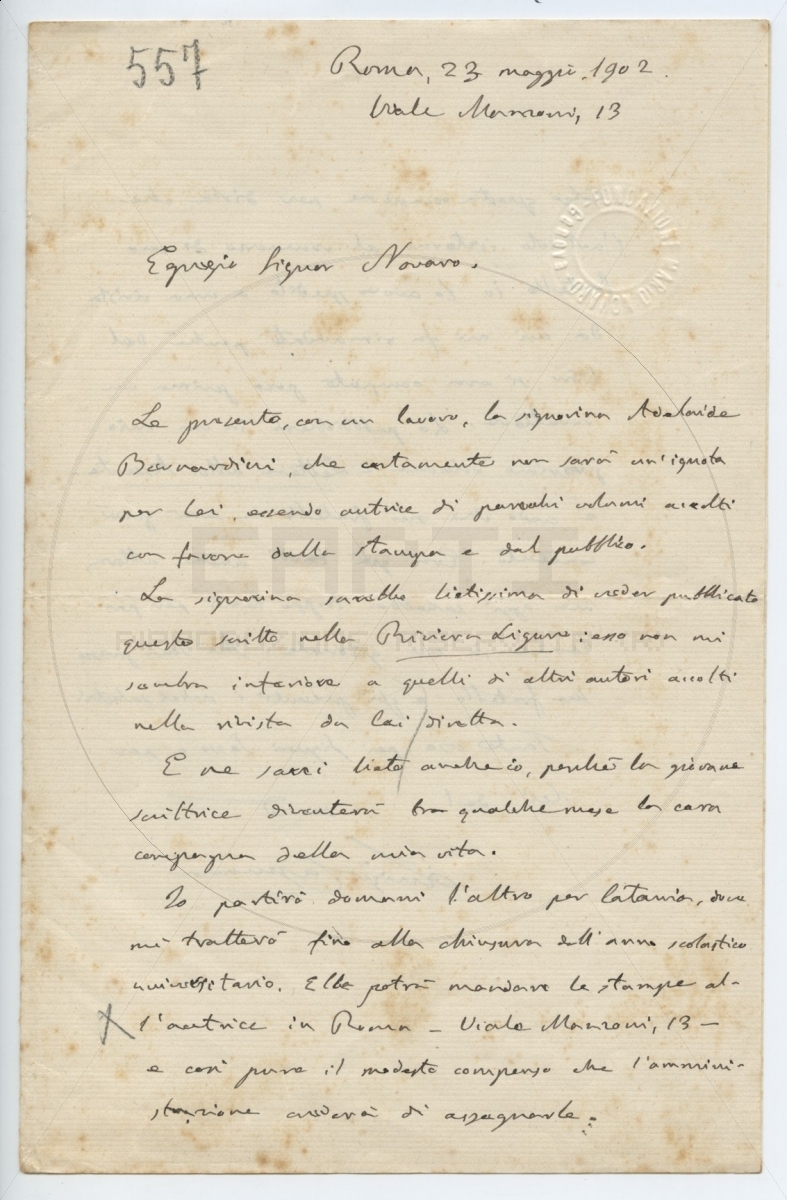 557
Roma, 23 maggio 1902.
Viale Manzoni, 13
Egregio Signor Novaro.
Le presento, con un lavoro, la signorina Adelaide
Bernardini, che certamente non sarà un'ignota
per Lei, essendo autrice di parecchi volumi accolti
con favore dalla stampa e dal pubblico.
La signorina sarebbe lietissima di veder pubblicato
questo scritto nella Riviera Ligure; esso non mi
sembra inferiore a quelli di altri autori accolti
nella rivista da Lei diretta.
E ne sarei lieto anche io, perchè la giovane
scrittrice diventerà tra qualche mese la cara
compagna della mia vita.
Io partirò domani l'altro per Catania, dove
mi tratterò fino alla chiusura dell'anno scolastico
universitario. Ella potrà mandare le stampe al-
l'autrice in Roma - Viale Manzoni, 13 -
e così pure il modesto compenso che l'ammini-
strazione crederà di assegnarle.